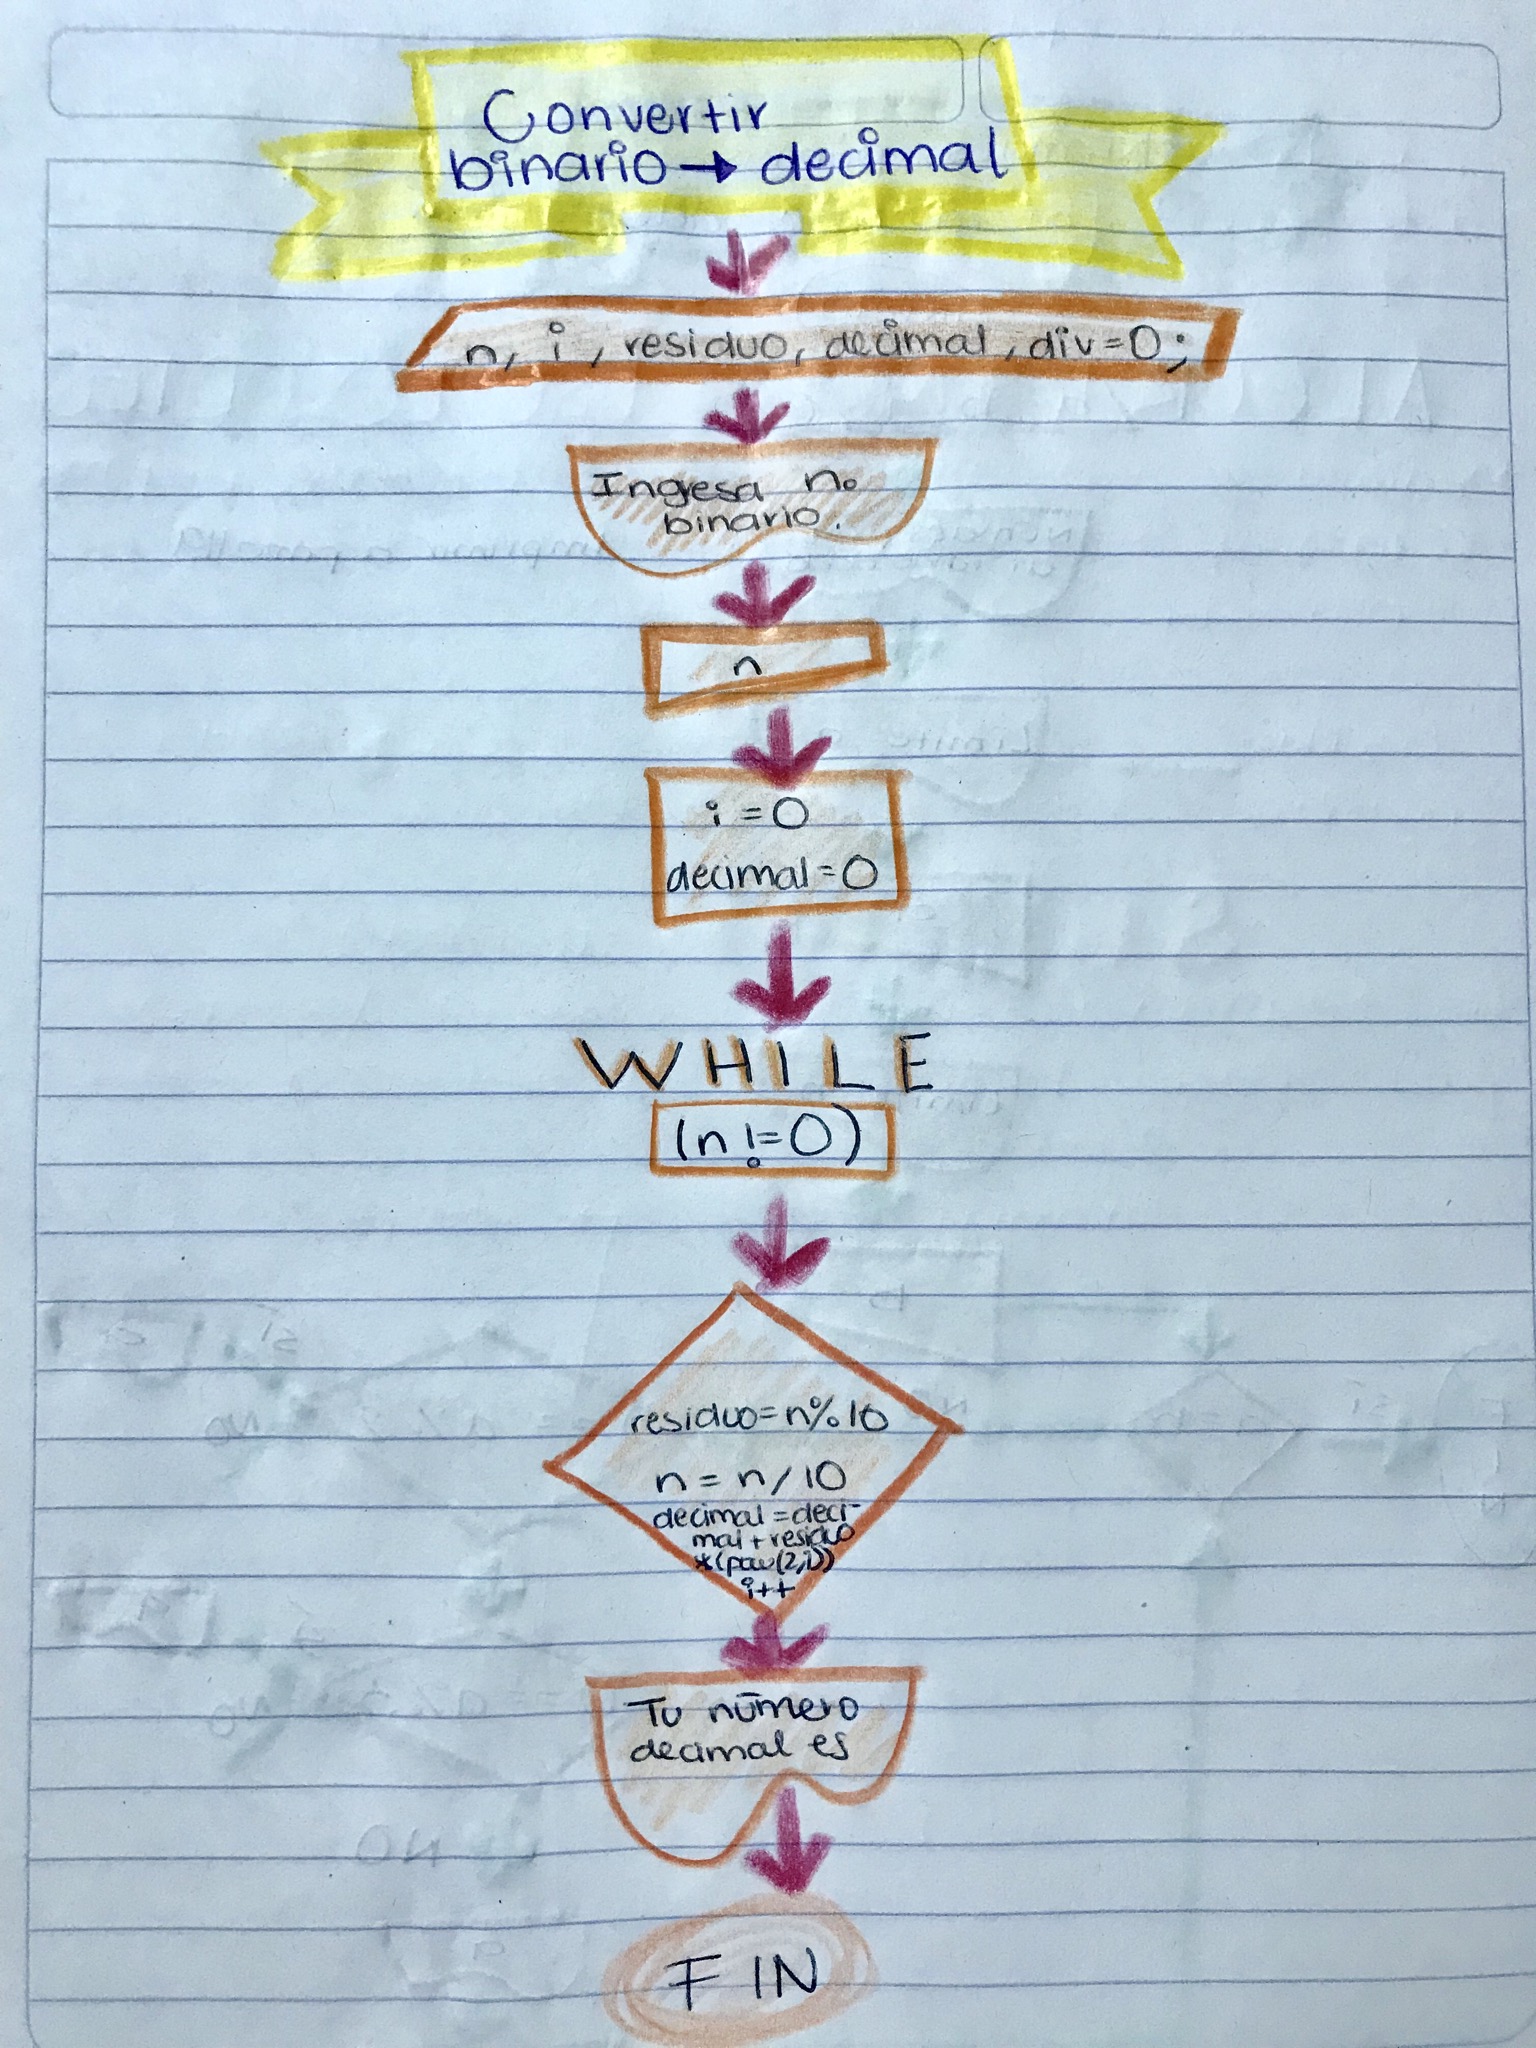 Convertir
binario → decimal
n, i, residuo, decimal, div=0;
Ingresa no
binario.
n
i=0
decimal=0
WHILE
(n!=0)
residuo=n%10
n=n/10
decimal=deci-
mal+residuo
*(pow(2,i))
i++
Tu número
decimal es
FIN